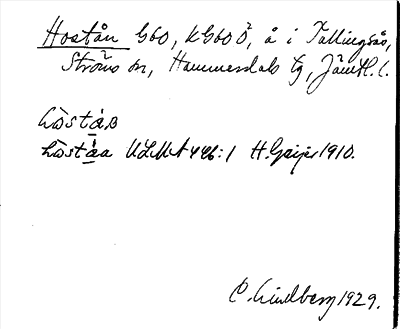 Hostån G60, KG60 Ö, å i Tullingsås,
Ströms sn, Hammerdals tg, Jämtl. l.
hòstá̱ꞵ
hòstá̱a ULMA 446:1 H. Geijer 1910.
C. Lindberg 1929.